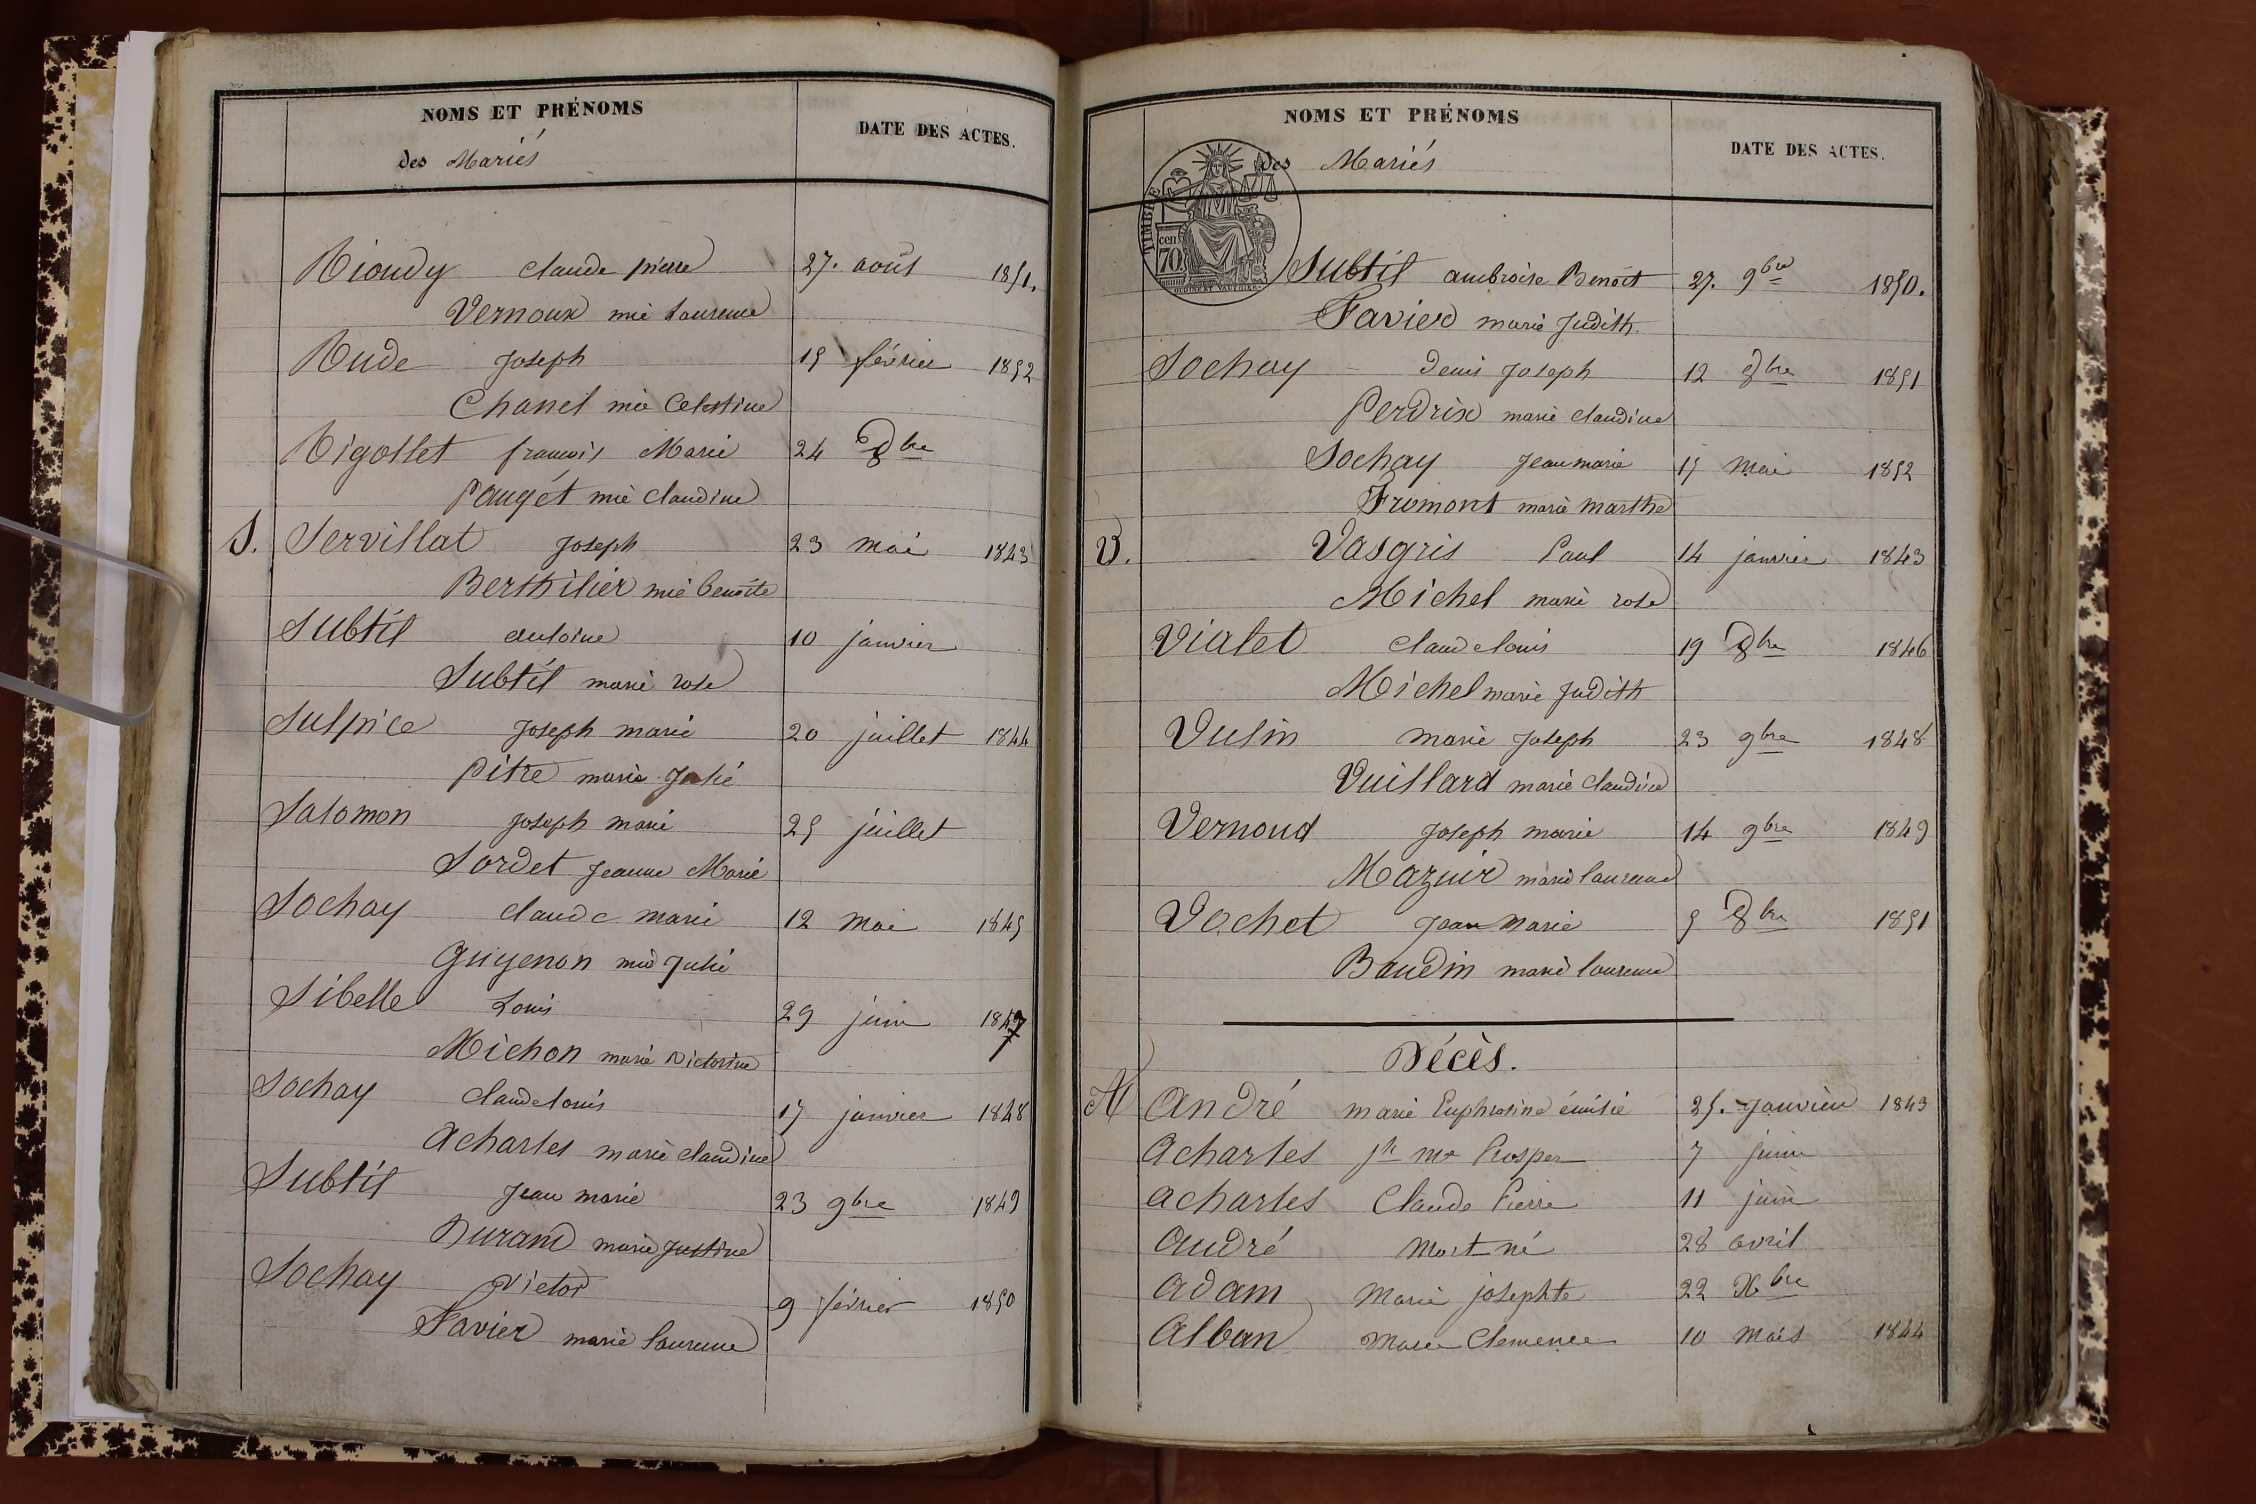 NOMS ET PRÉNOMS DATE DES ACTES.
des Mariés
Rioudy claude pierre 27. août 1851.
Vernoux mie Laurence
Rude Joseph 15 février 1852
Chanel mie Celestine
Rigollet françois Marie 24 8bre
Pauget mie Claudine
S. Servillat Joseph 23 mai 1843
Berthilier mie benoite
Subtil antoine 10 janvier
Subtil marie rose
Sulpice Joseph marie 20 juillet 1844
Pitre marie Julie
Salomon Joseph marie 25 juillet
Sordet Jeanne Marie
Sochay Claude marie 12 mai 1845
Guyenon mie Julie
Sibelle Louis 29 juin 1847
Michon marie victorine
Sochay Claude louis 17 janvier 1848
Acharles marie claudine
Subtil Jean marie 23 9bre 1849
Durand marie Justine
Sochay victor 9 février 1850
Favier marie laurence
NOMS ET PRÉNOMS DATE DES ACTES.
des Mariés
TIMBRE
70 cen
Subtil ambroise Benoît 27. 9bre 1850.
Favier marie Judith
Sochay Denis Joseph 12 8bre 1851
Perdrix marie claudine
Sochay Jean marie 15 mai 1852
Fromont marie marthe
V. Vasgris Paul 14 janvier 1843
Michel marie rose
Vialet Claude louis 19 8bre 1846
Michel marie Judith
Vulin marie Joseph 23 9bre 1848
Vuillard marie claudine
Vernoud Joseph marie 14 9bre 1849
Mazuir marie laurence
Vochet Jean Marie 5 8bre 1851
Baudin marie laurence
Décès.
A André marie Euphrosine émilie 25. Janvier 1843
Acharles jh me Prosper 7 juin
Acharles Claude Pierre 11 juin
André Mort né 28 avril
Adam Marie josephte 22 Xbre
Alban Marie Clemence 10 Mars 1844